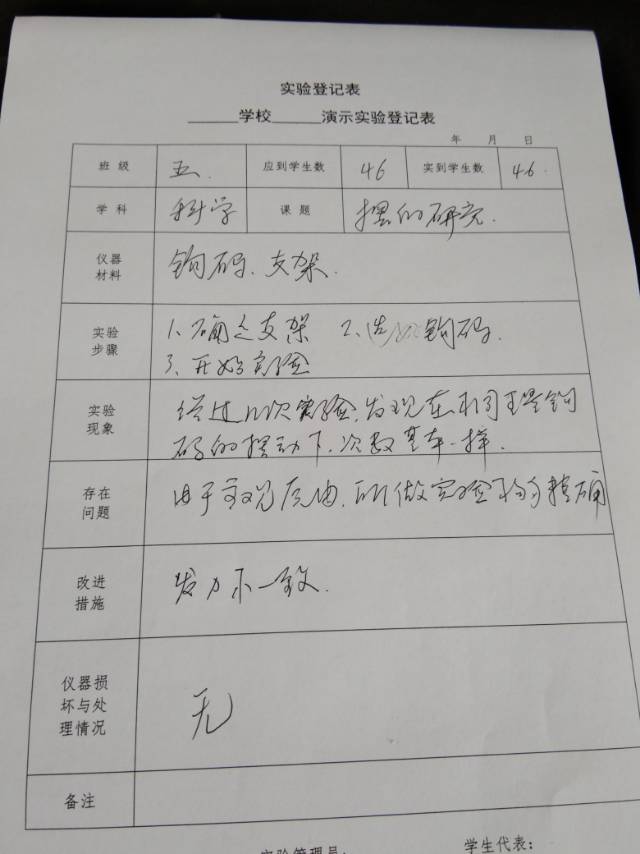 实验登记表
______学校______演示实验登记表
年 月 日
班 级 五. 应到学生数 46 实到学生数 46.
学 科 科学 课 题 摆的研究.
仪器
材料
钩码、支架.
实验
步骤
1、确定支架 2、选 钩码.
3、开始实验
实验
现象
经过几次实验,发现在相同重量钩
码的摆动下,次数基本一样.
存在
问题
由于客观原因,所做实验 精确
改进
措施
发力不一致.
仪器损
坏与处
理情况
无
备注
实验管理员: 学生代表: